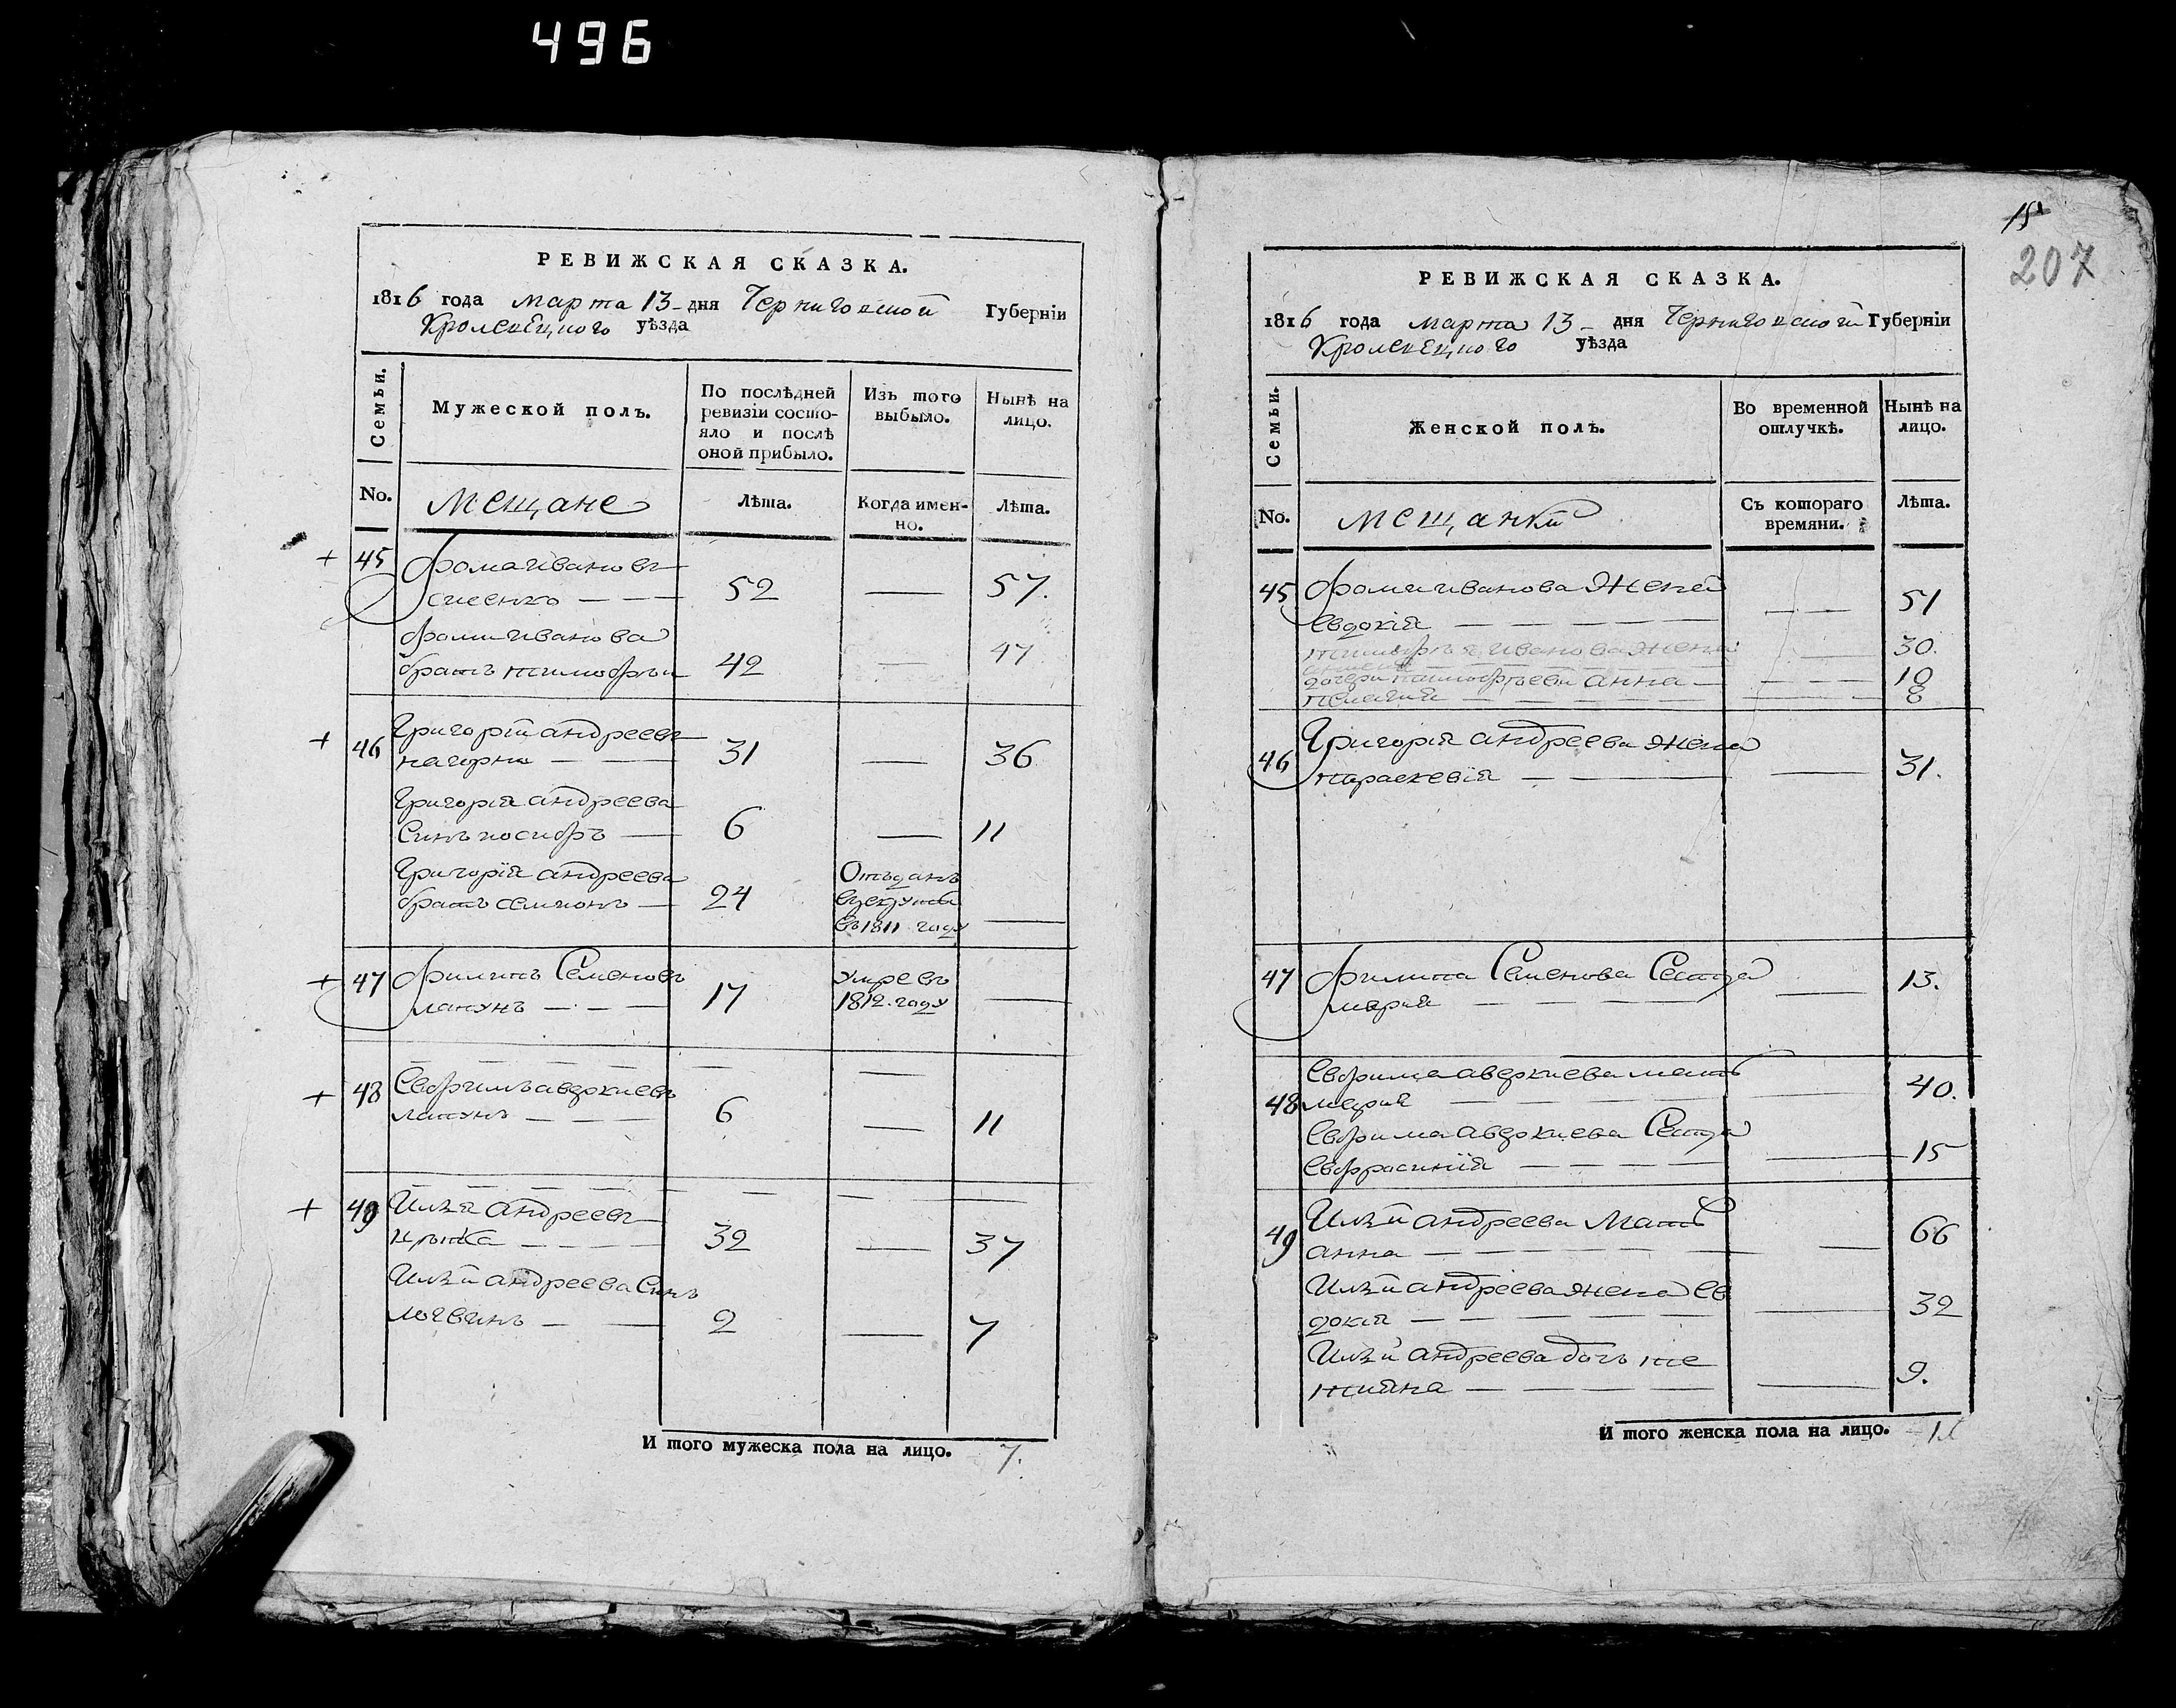 496
РЕВИЖСКАЯ СКАЗКА.
1816 года марта 13 дня Черниговской Губерніи
Кролевецкого уѣзда
Семьи.
Мужеской полъ.
По послѣдней ревизіи состояло и послѣ оной прибыло.
Изъ того выбыло.
Нынѣ на лицо.
No.
Мещане
Лѣта.
Когда именно.
Лѣта.
+ 45 Фома Ивановъ
52 — 57.
Фоми Иванова
братъ тимофѣи 42 — 47
+ 46 Григорій андреевъ
нагорни 31 — 36
Григорія андреева
Синъ иосифъ 6 — 11
Григорія андреева
братъ семионъ 24 —
Отъданъ
в рекрути
въ 1811 году
+ 47 Филипъ Семеновъ
лапунъ 17 —
умре въ
1812 году
+ 48 Евфимъ аверкиевъ
лапунъ 6 — 11
+ 49 Илья андреевъ
32 — 37
Ильи андреева Синъ
логвинъ 2 — 7
И того мужеска пола на лицо. 7.
15
207
РЕВИЖСКАЯ СКАЗКА.
1816 года марта 13 дня Черниговской Губерніи
Кролевецкого уѣзда
Семьи.
Женской полъ.
Во временной отлучкѣ.
Нынѣ на лицо.
No.
мещанки
Съ котораго времяни.
Лѣта.
45 Фоми иванова жена
Евдокія — 51
тимофѣя иванова жена
— 30.
дочери тимофѣеви анна — 10
пелагия — 8
46 Григорія андреева жена
параскевія — 31.
47 Филипа Семенова Сестра
марія — 13.
48 Евфима аверкиева мать
марія — 40.
Евфима аверкиева Сестра
Евфросинія — 15
49 Ильи андреева Мать
анна — 66
Ильи андреева жена Ев
докия — 32
Ильи андреева дочь те
тияна — 9.
И того женска пола на лицо.